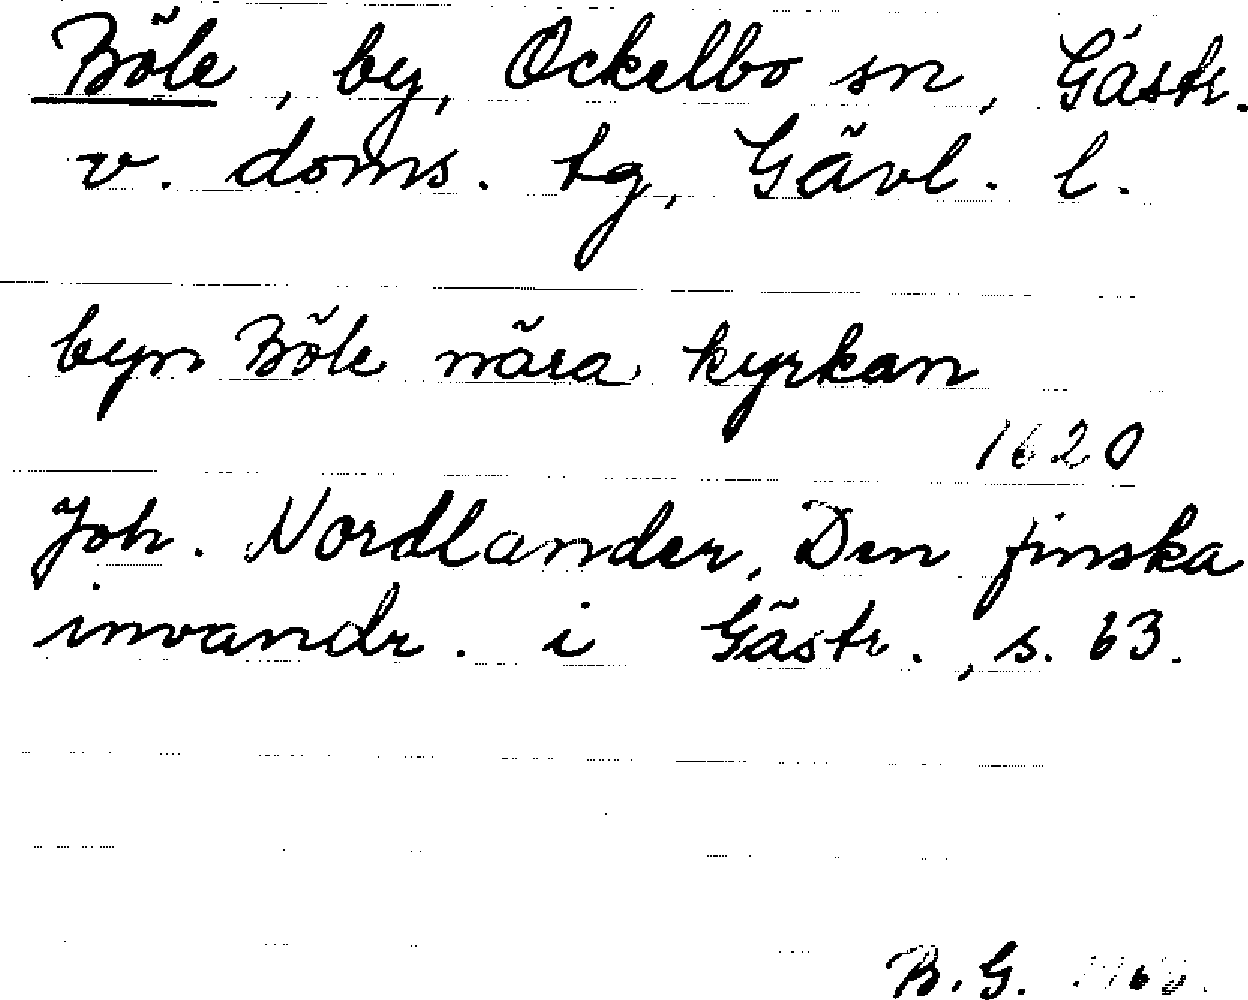 Böle, by, Ockelbo sn, Gästr.
v. doms. tg, Gävl. l.
byn Böle nära kyrkan
1620
Joh. Nordlander, Den finska
invandr. i Gästr., s. 63.
B. G.